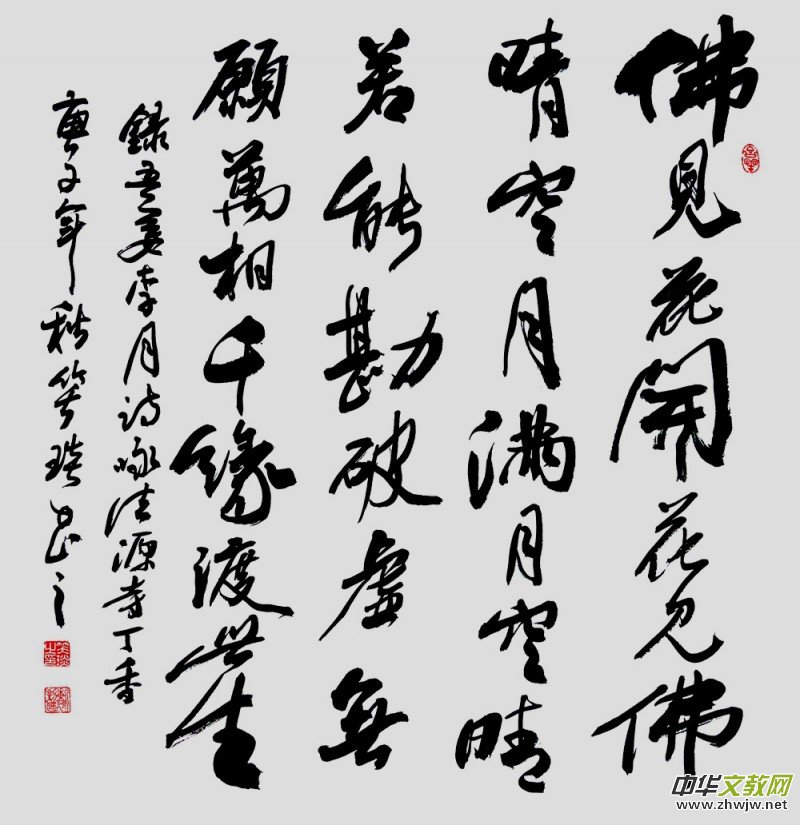 佛見花開花見佛
晴空月滿月空晴
若能勘破虛無
願萬相千緣渡此生
錄吾妻李月詩咏法源寺丁香
庚子年秋笑琰書之
中华文教网
www.zhwjw.net